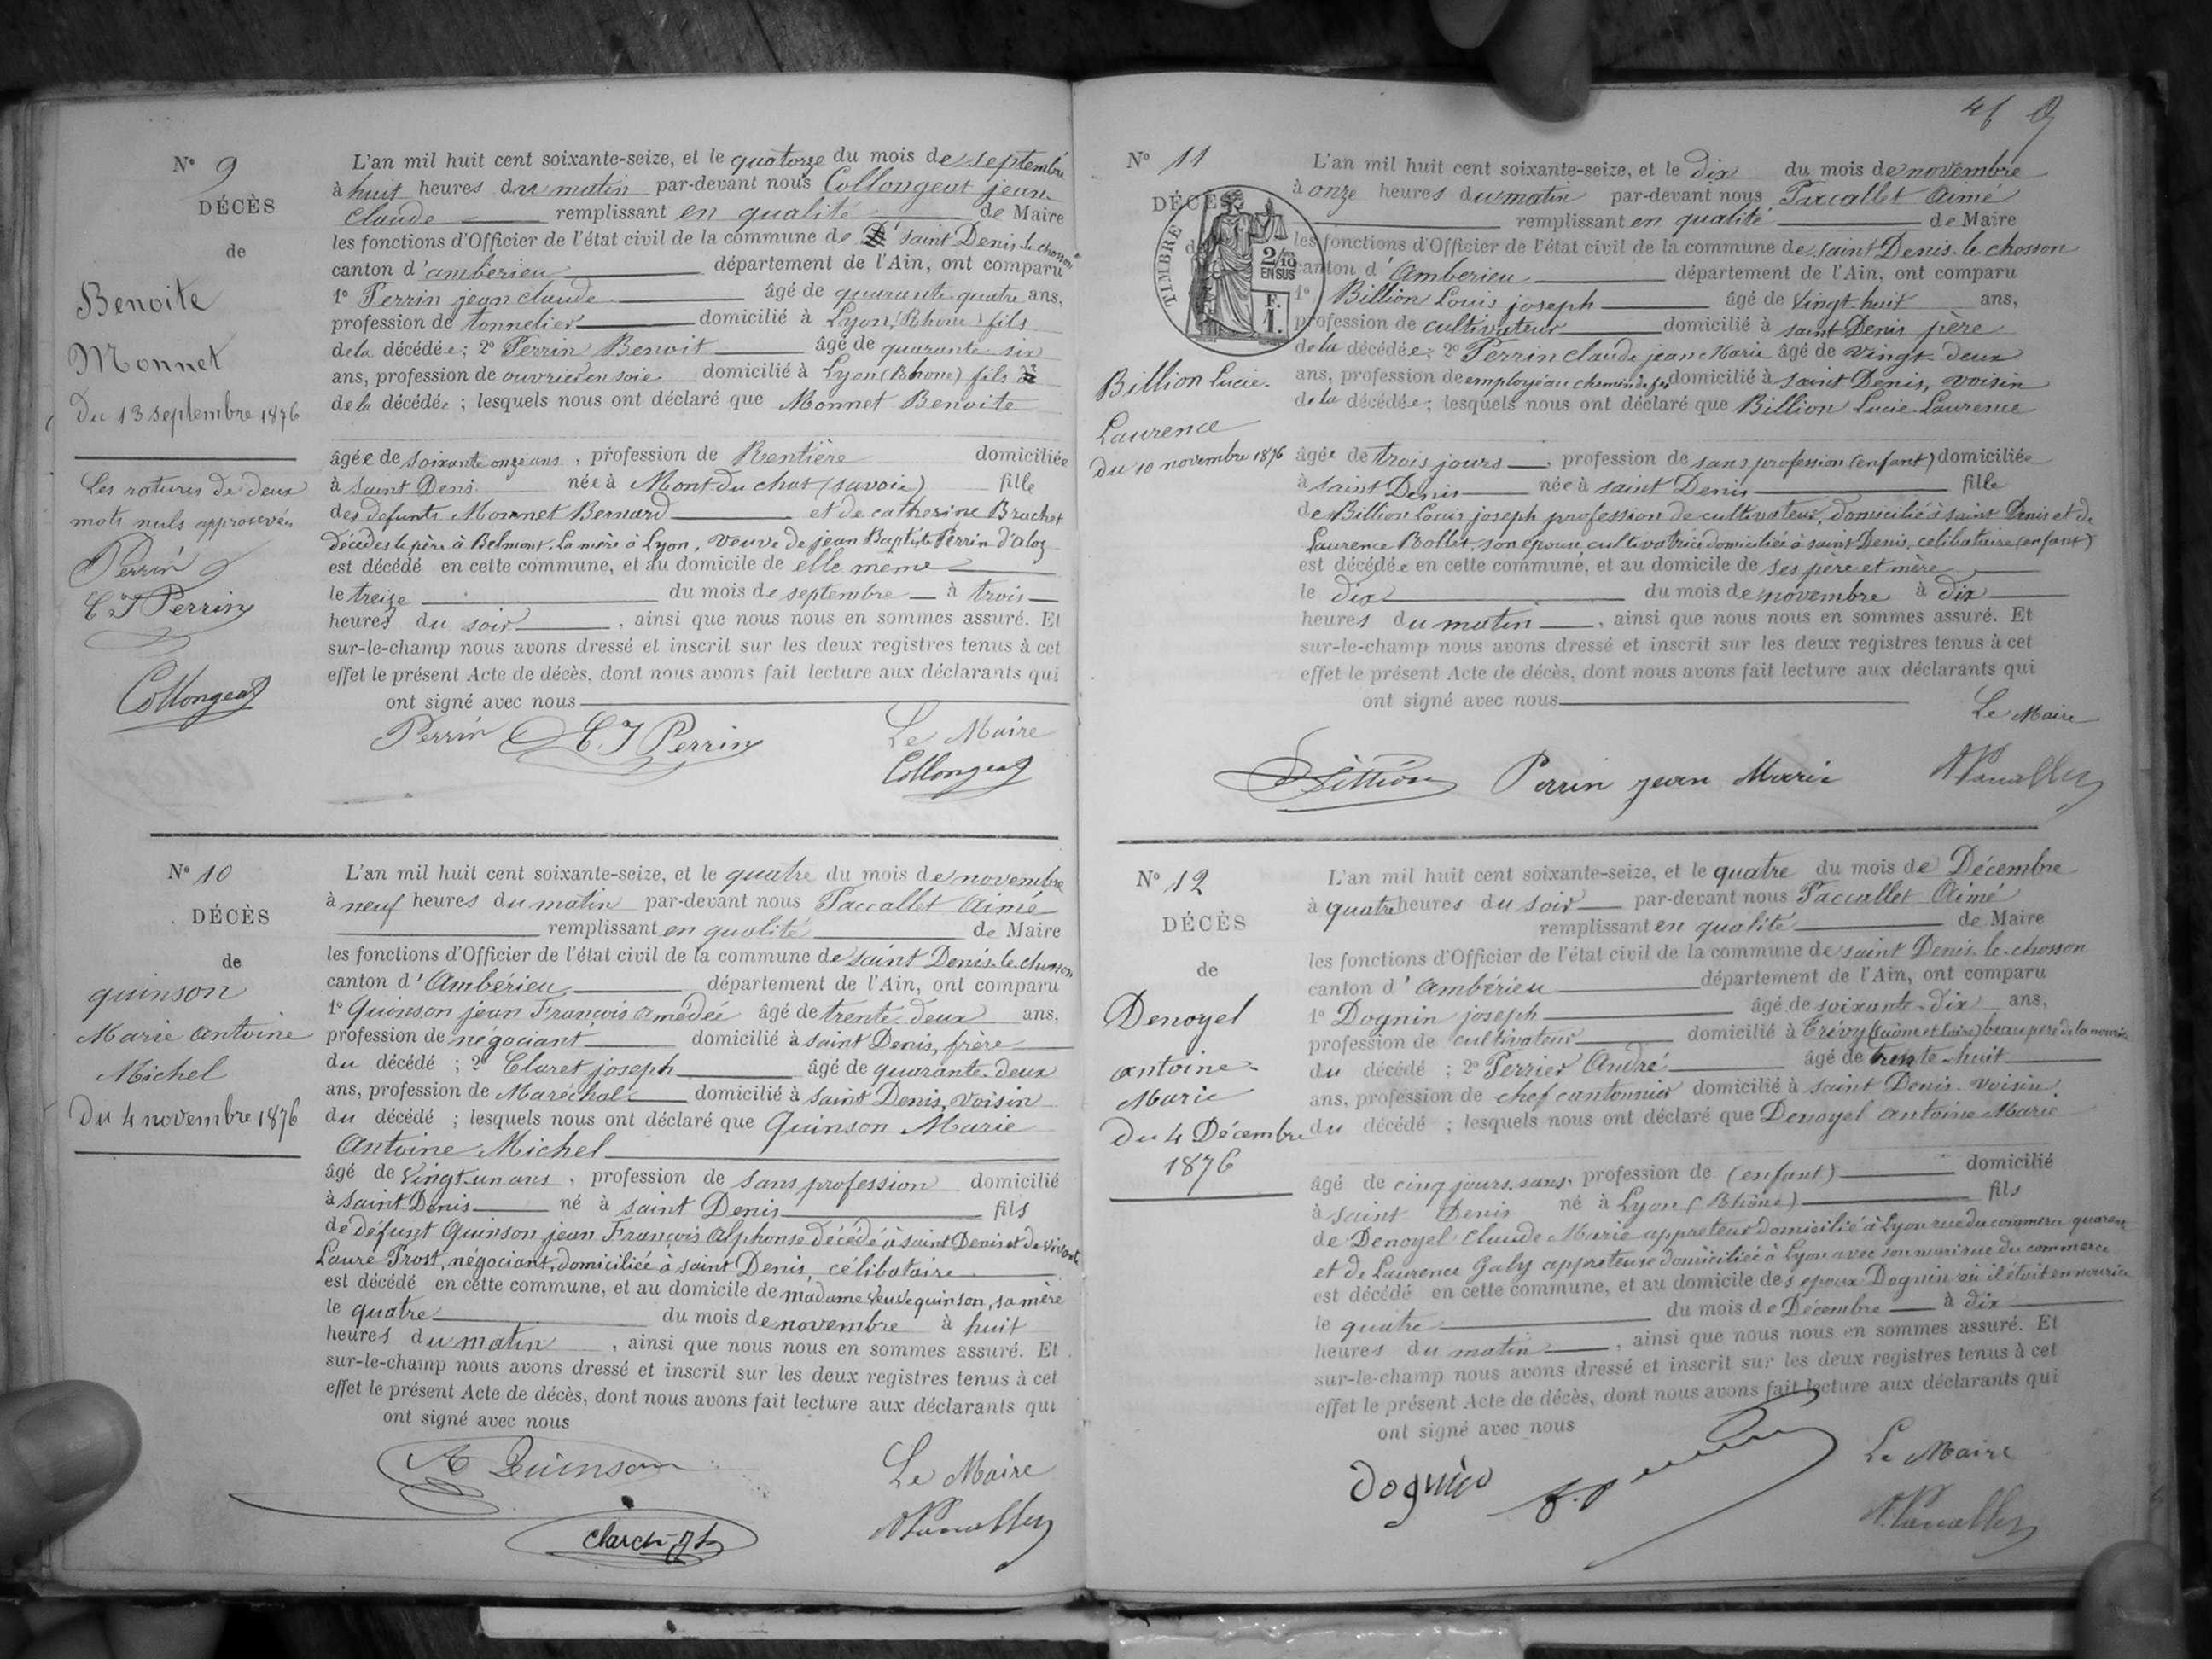 N° 9
DÉCÈS
de
Benoite
Monnet
Du 13 septembre 1876
Les ratures de deux
mots nuls approuvées
Perrin
C J Perrin
Collongeat
L'an mil huit cent soixante-seize, et le quatorze du mois de septembre
à huit heures du matin par-devant nous Collongeat jean
claude remplissant en qualité de Maire
les fonctions d'Officier de l'état civil de la commune de saint Denis le chosson
canton d'ambérieu département de l'Ain, ont comparu
1° Perrin jean claude âgé de quarante quatre ans,
profession de tonnelier domicilié à Lyon (Rhone) fils
de la décédée ; 2° Perrin Benoit âgé de quarante six
ans, profession de ouvrier en soie domicilié à Lyon (Rhone) fils
de la décédée ; lesquels nous ont déclaré que Monnet Benoite
âgée de soixante onze ans, profession de Rentière domiciliée
à saint Denis née à Mont du chat (savoie) fille
des defunts Monnet Bernard et de catherine Brachet
décédés le père à Belmont, la mère à Lyon, veuve de jean Baptiste Perrin d'aloz
est décédé en cette commune, et au domicile de elle meme
le treize du mois de septembre à trois
heures du soir, ainsi que nous nous en sommes assuré. Et
sur-le-champ nous avons dressé et inscrit sur les deux registres tenus à cet
effet le présent Acte de décès, dont nous avons fait lecture aux déclarants qui
ont signé avec nous
Perrin C. J Perrin Le Maire
Collongeat
N° 10
DÉCÈS
de
quinson
Marie antoine
Michel
Du 4 novembre 1876
L'an mil huit cent soixante-seize, et le quatre du mois de novembre
à neuf heures du matin par-devant nous Paccallet Aimé
remplissant en qualité de Maire
les fonctions d'Officier de l'état civil de la commune de saint Denis le chosson
canton d'Ambérieu département de l'Ain, ont comparu
1° Quinson jean François amédée âgé de trente deux ans,
profession de négociant domicilié à saint Denis, frère
du décédé ; 2° Claret joseph âgé de quarante deux
ans, profession de Maréchal domicilié à saint Denis, voisin
du décédé ; lesquels nous ont déclaré que Quinson Marie
Antoine Michel
âgé de vingt-un ans, profession de sans profession domicilié
à saint Denis né à saint Denis fils
de défunt Quinson jean François Alphonse décédé à saint Denis et de vivante
Laure Prost, négociant, domiciliée à saint Denis, célibataire
est décédé en cette commune, et au domicile de madame veuve quinson, sa mère
le quatre du mois de novembre à huit
heures du matin, ainsi que nous nous en sommes assuré. Et
sur-le-champ nous avons dressé et inscrit sur les deux registres tenus à cet
effet le présent Acte de décès, dont nous avons fait lecture aux déclarants qui
ont signé avec nous
A Quinson Le Maire
N° 11
DÉCÈS
TIMBRE
2/10
EN SUS
F.
1.
Billion Lucie
Laurence
du 10 novembre 1876
L'an mil huit cent soixante-seize, et le dix du mois de novembre
à onze heures du matin par-devant nous Paccallet Aimé
remplissant en qualité de Maire
les fonctions d'Officier de l'état civil de la commune de saint Denis-le chosson
canton d'Amberieu département de l'Ain, ont comparu
1° Billion Louis joseph âgé de vingt-huit ans,
profession de cultivateur domicilié à saint Denis père
de la décédée ; 2° Perrin claude jean Marie âgé de vingt deux
ans, profession de employé au chemin de fer domicilié à saint Denis, voisin
de la décédée ; lesquels nous ont déclaré que Billion Lucie Laurence
âgée de trois jours, profession de sans profession (enfant) domiciliée
à saint Denis née à saint Denis fille
de Billion Louis joseph profession de cultivateur, domicilié à saint Denis et de
Laurence Bollet, son épouse, cultivatrice domiciliée à saint Denis, celibataire (enfant)
est décédée en cette commune, et au domicile de ses père et mère
le dix du mois de novembre à dix
heures du matin, ainsi que nous nous en sommes assuré. Et
sur-le-champ nous avons dressé et inscrit sur les deux registres tenus à cet
effet le présent Acte de décès, dont nous avons fait lecture aux déclarants qui
ont signé avec nous
Le Maire
Billion Perrin jean Marie
N° 12
DÉCÈS
de
Denoyel
antoine
Marie
Du 4 Décembre
1876
L'an mil huit cent soixante-seize, et le quatre du mois de Décembre
à quatre heures du soir par-devant nous Paccallet Aimé
remplissant en qualité de Maire
les fonctions d'Officier de l'état civil de la commune de saint Denis le chosson
canton d'ambérieu département de l'Ain, ont comparu
1° Dognin joseph âgé de soixante-dix ans,
profession de cultivateur domicilié à beau père de la nourrice
du décédé ; 2° Perrier André âgé de trente-huit
ans, profession de chef cantonnier domicilié à saint Denis voisin
du décédé ; lesquels nous ont déclaré que Denoyel antoine Marie
âgé de cinq jours, sans profession de (enfant) domicilié
à saint Denis né à Lyon (Rhône) fils
de Denoyel Claude Marie appreteur domicilié à Lyon rue du commerce quarante
et de Laurence Galy appreteuse domiciliée à Lyon avec son mari rue du commerce
est décédé en cette commune, et au domicile des epoux Dognin où il était en nourrice
le quatre du mois de Décembre à dix
heures du matin, ainsi que nous nous en sommes assuré. Et
sur-le-champ nous avons dressé et inscrit sur les deux registres tenus à cet
effet le présent Acte de décès, dont nous avons fait lecture aux déclarants qui
ont signé avec nous
Dognin Le Maire